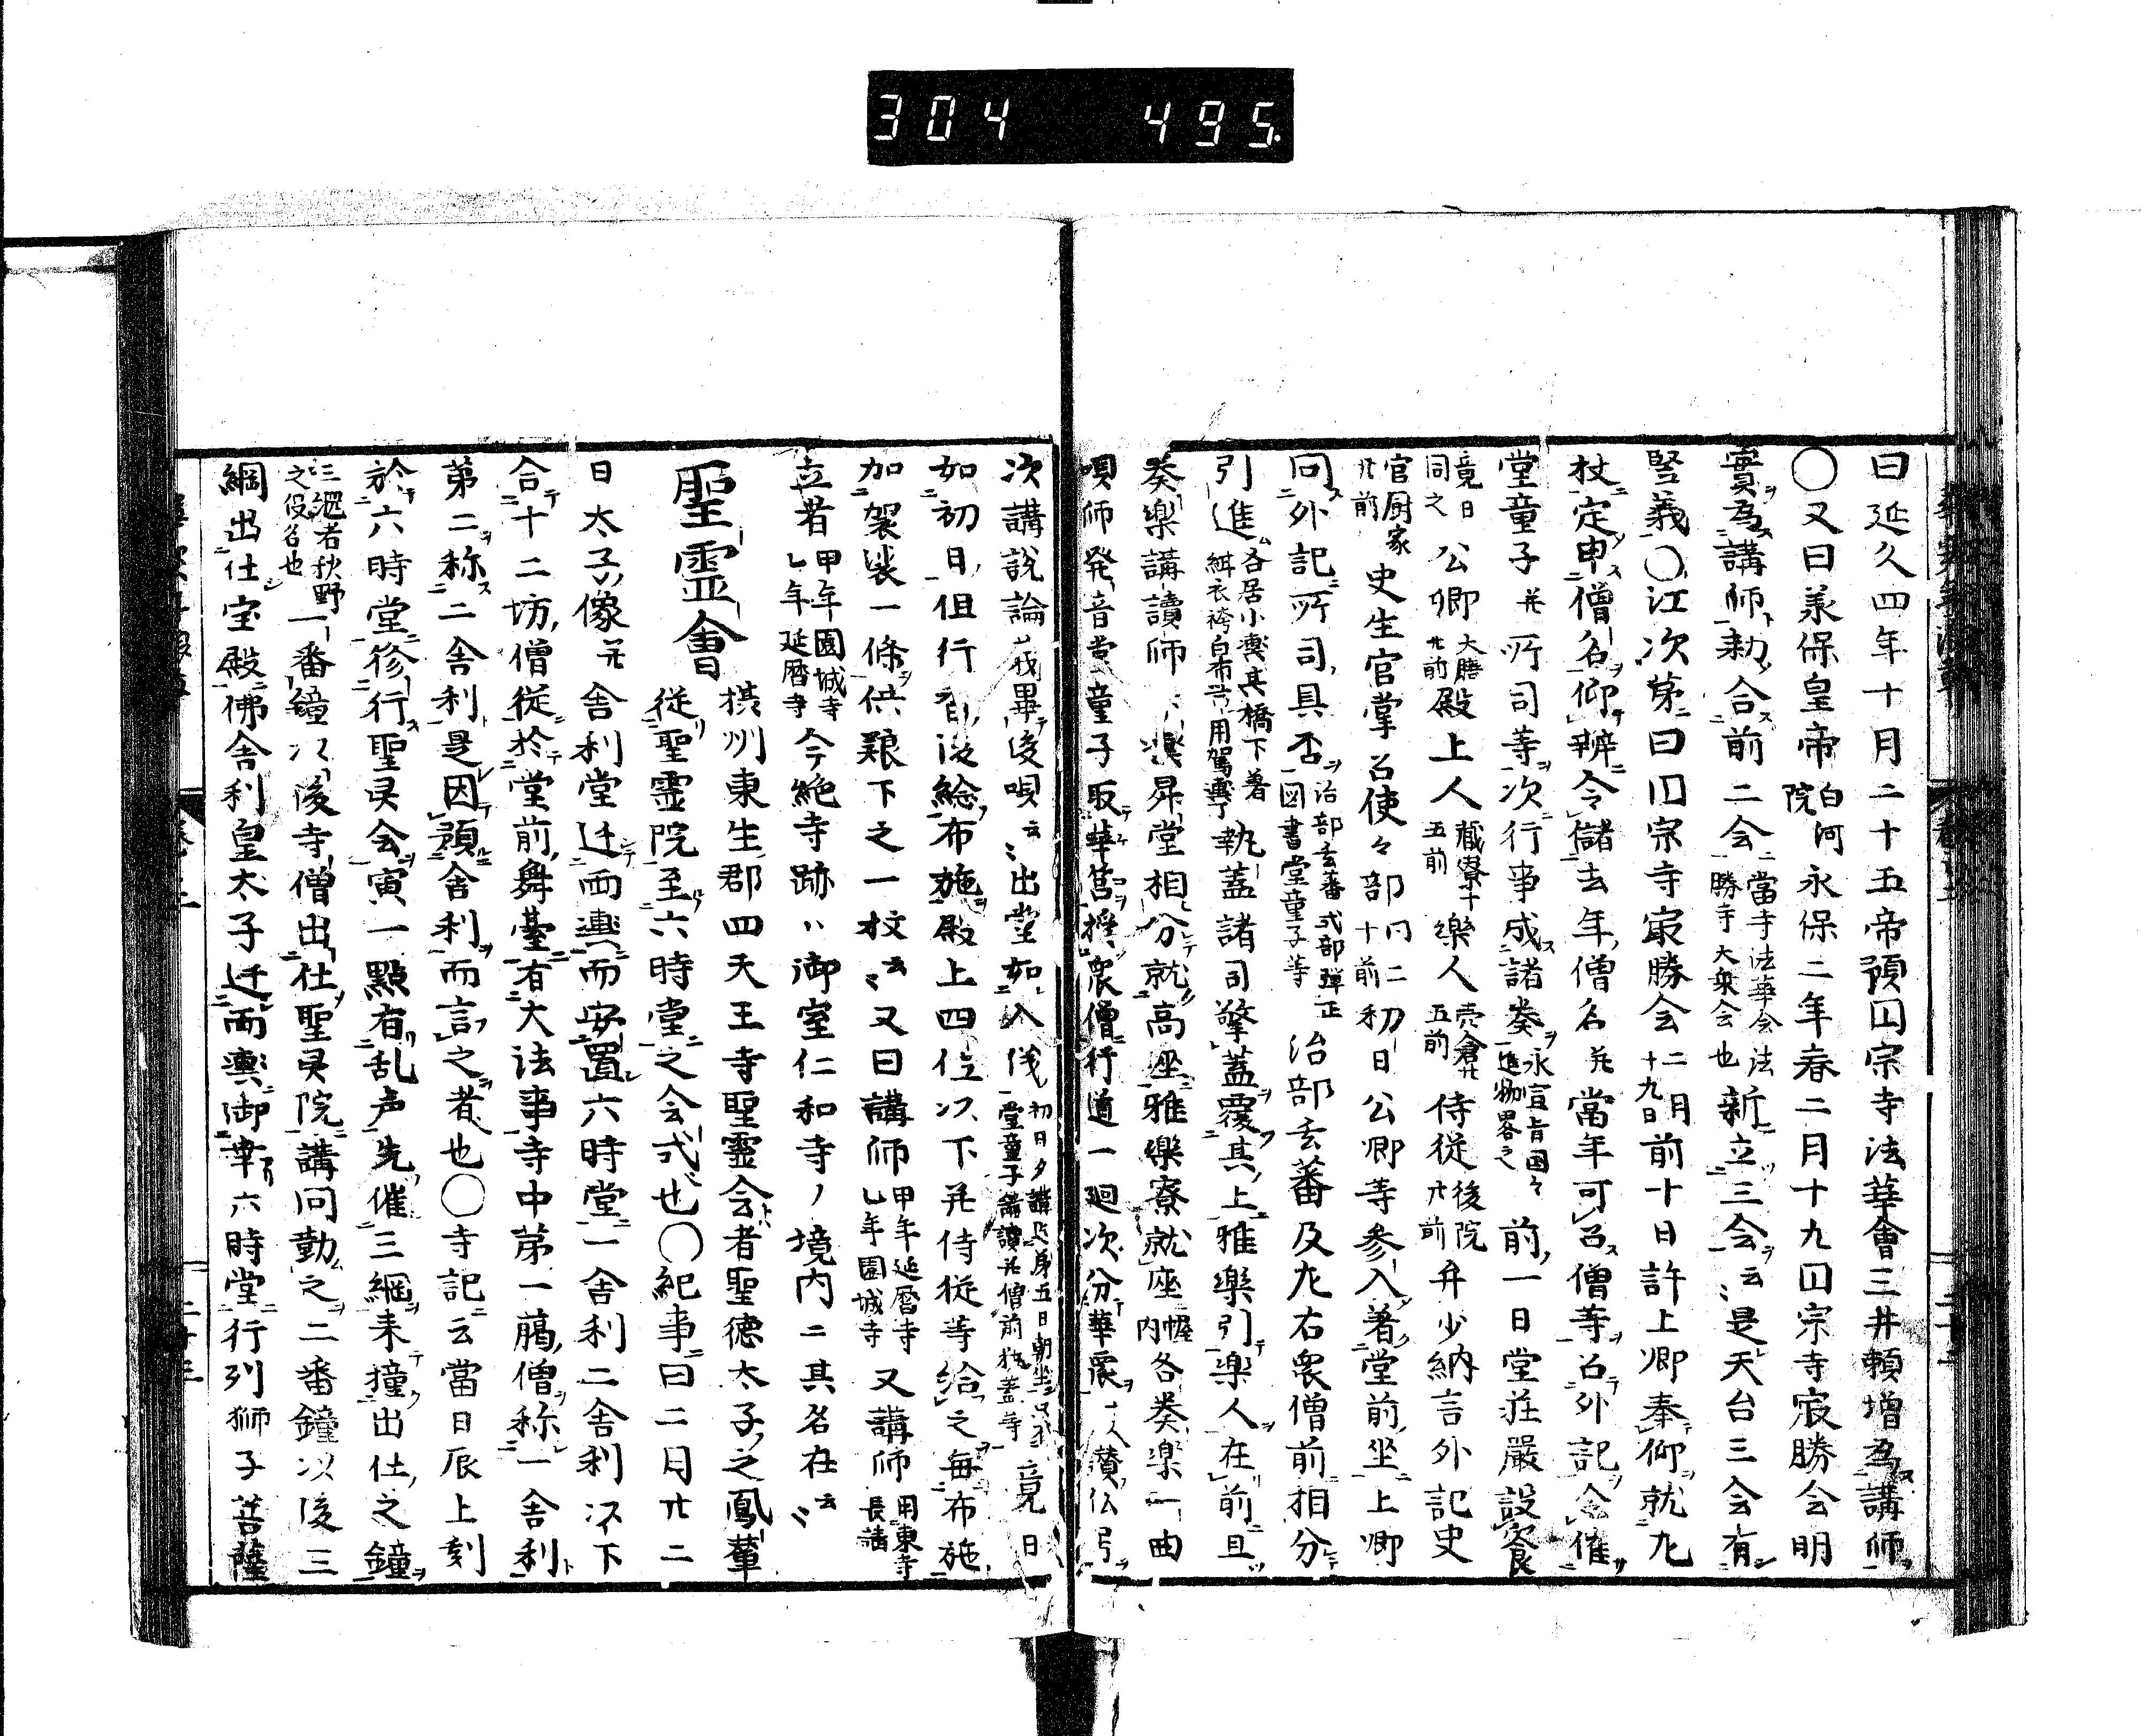 304 495
曰延久四年十月二十五帝預円宗寺法華會三井頼増為講師
〇又曰羕保皇帝白河院永保二年春二月十九円宗寺㝡勝会明
實為講師勅合前二会當寺法華会法勝寺大衆会也新立三会云〻是天台三会有
竪義〇江次第曰円宗寺㝡勝会二月十九日前十日許上卿奉仰就九
杖定申僧名仰辨令儲去年僧名并當年可召僧等召外記令催
堂童子并所司等次行事成諸奏永宣旨國々進物畧之前一日堂荘嚴設餐
竟日同之公卿大膳廿前殿上人藏寮十五前樂人五前侍従後院廿前弁少納言外記史
官厨家廿前史生官掌召使々部十前初二日公卿等參入著堂前坐上卿
問外記所司具否治部玄蕃式部弾正圖書堂童子等治部玄蕃及九右衆僧前相分
引進各居小輿其橋下著緋衣袴白布用駕輿丁執蓋諸司擎蓋覆其上雅樂引樂人在前且
奏樂講讀師輿昇堂相分就高座雅樂寮就座幄内各奏樂一曲
唄師発音堂童子取華筥授衆僧行道一廻次分華衆讃仏
次講說論義畢後唄云〻出堂如入儀竟日
如初日但行香後給布施殿上四位以下并侍従等給之毎布施
加袈裟一條供艱下之一枚云〻又曰講師甲年延暦寺乙年園城寺又講師用東寺長請
立者甲年園城寺乙年延暦寺今絶寺跡ハ御室仁和寺ノ境内ニ其名在云〻
聖霊會摂州東生郡四天王寺聖霊会者聖徳太子之鳳輦
従聖霊院至六時堂之会式也〇紀事曰二月廿二
日太子像并舎利堂迁而輿而安置六時堂一舎利二舎利以下
合十二坊僧従於堂前舞臺有大法事寺中第一﨟僧称一舎利
第二称二舎利是因預舎利而言之者也〇寺記云當日辰上刻
於六時堂修行聖㚑会寅一點有乱声先催三綱来撞出仕之鐘
三綱者秋野之役名也一番鐘以後寺僧出仕聖㚑院講問勤之二番鐘以後三
綱出仕宝殿佛舎利皇太子迁而輿御幸六時堂行列獅子菩薩